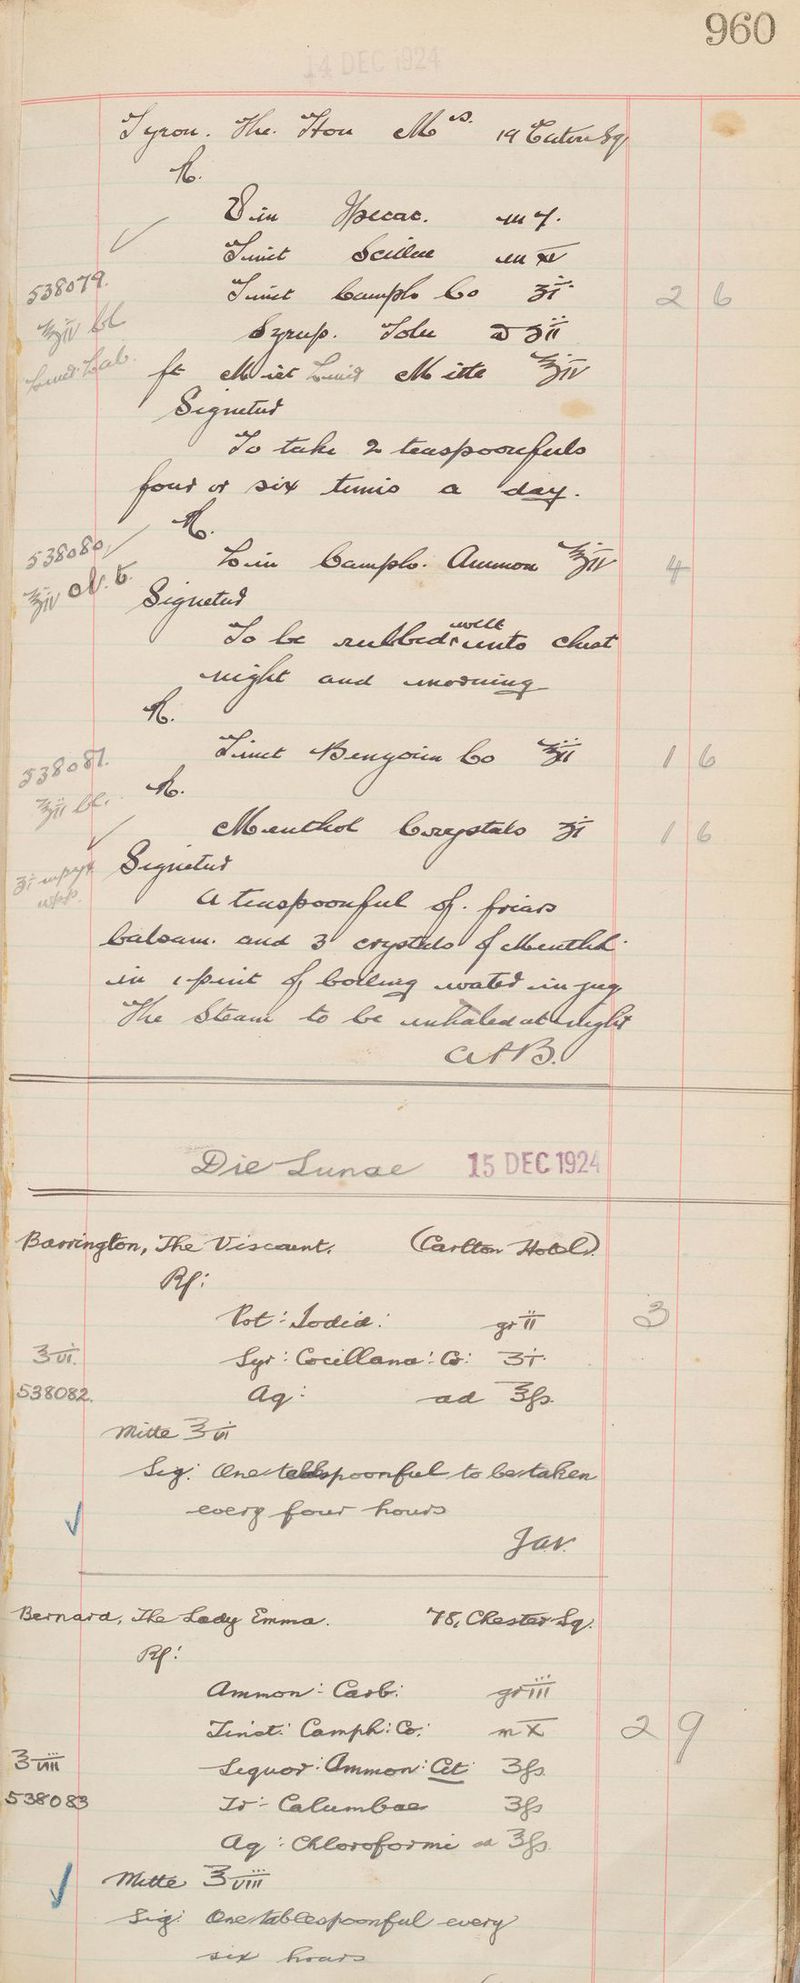 960
14 DEC 1924
Tyron. The. Hon Mrs. 19 Eaton Sq
R.
Vin Ipecac. m
Tinct Scillae m xv
538079.
Tinct Camph Co ʒi 2 6
℥iv bl
Syrup. Tolu ʒii
ft Mist Mitte ℥iv
Signetur
To take 2 teaspoonfuls
four or six times a day.
R.
538080
Lin Camph. Ammon ℥iv 4
℥iv
Signetur
To be rubbed well into chest
night and morning
R.
Tinct Benzoin Co ℥ii 1 6
538081.
℥ii bl.
R.
Menthol Crystals ʒi 1 6
Signetur
A teaspoonful of friars
balsam. and 3 crystals of Menthol
in 1 pint of boiling water in jug
The Steam to be inhaled at night
Die Lunae 15 DEC 1924
Barrington, The Viscount. (Carlton Hotel)
Rp:
Pot: Iodid: gr ii 3
℥vi. Syr: Cocillana: Co: ʒi.
538082. Aq: ad ℥ſs.
Mitte ℥vi
Sig: One tablespoonful to be taken
every four hours
Bernard, The Lady Emma. 78, Chester Sq.
Rp:
Ammon: Carb: gr iii
Tinct: Camph: Co: m x 2 9
℥viii Liquor: Ammon: Cit ʒſs
538083 Tr: Calumbae ʒſs
Aq: Chloroformi ad ℥ſs.
Mitte ℥viii
Sig: One tablespoonful every
six hours